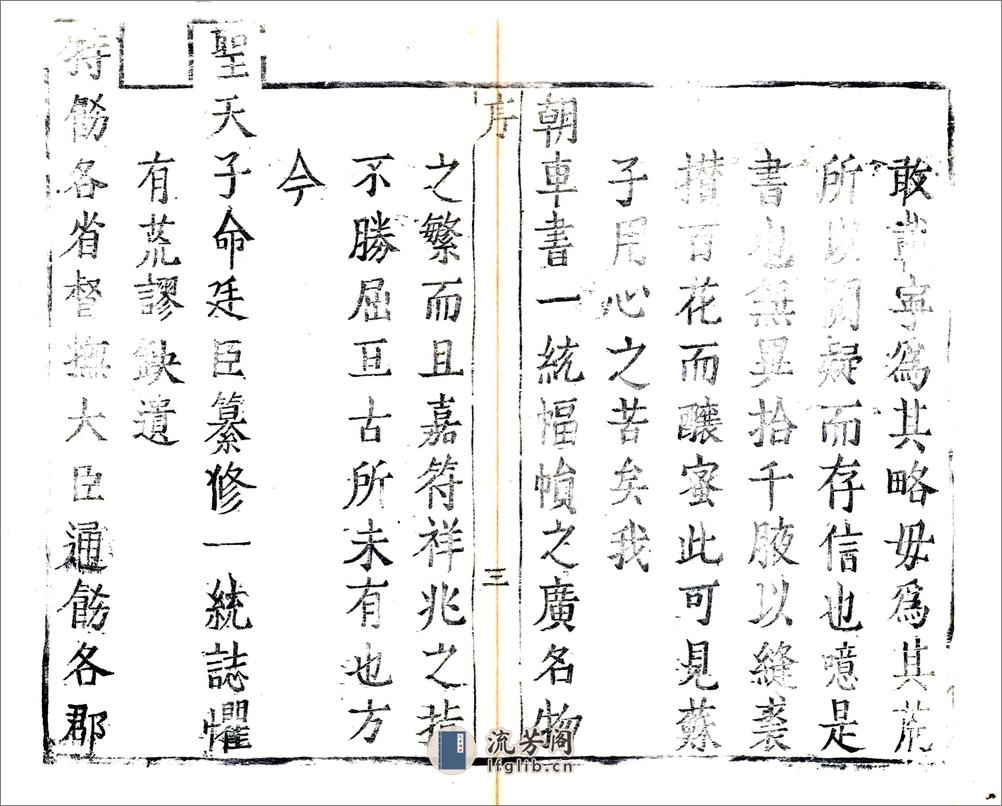 敢非寧爲其略毋爲其荒
所以闕疑而存信也噫是
書也無異拾千腋以縫裘
攢百花而釀蜜此可見蘇
子用心之苦矣我
朝車書一統幅幀之廣名物
序
三
之繁而且嘉符祥兆之指
不勝屈亘古所未有也方
今
聖天子命廷臣纂修一統誌懼
有荒謬缺遺
特飭各省督撫大臣通飭各郡
流芳阁
lfglib.cn